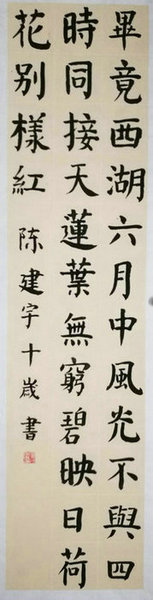 畢竟西湖六月中風光不與四
時同接天蓮葉無窮碧映日荷
花別樣紅 陈建宇十歲書